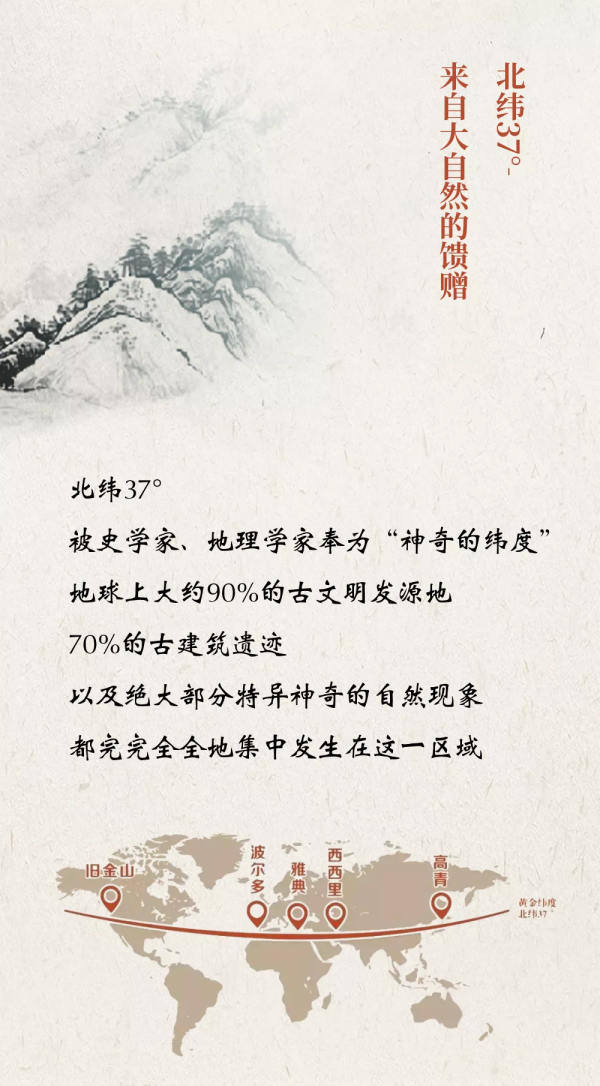 北纬37°-
来自大自然的馈赠
北纬37°
被史学家、地理学家奉为“神奇的纬度”
地球上大约90%的古文明发源地
70%的古建筑遗迹
以及绝大部分特异神奇的自然现象
都完完全全地集中发生在这一区域
旧金山
波尔多
雅典
西西里
高青
黄金纬度
北纬37°